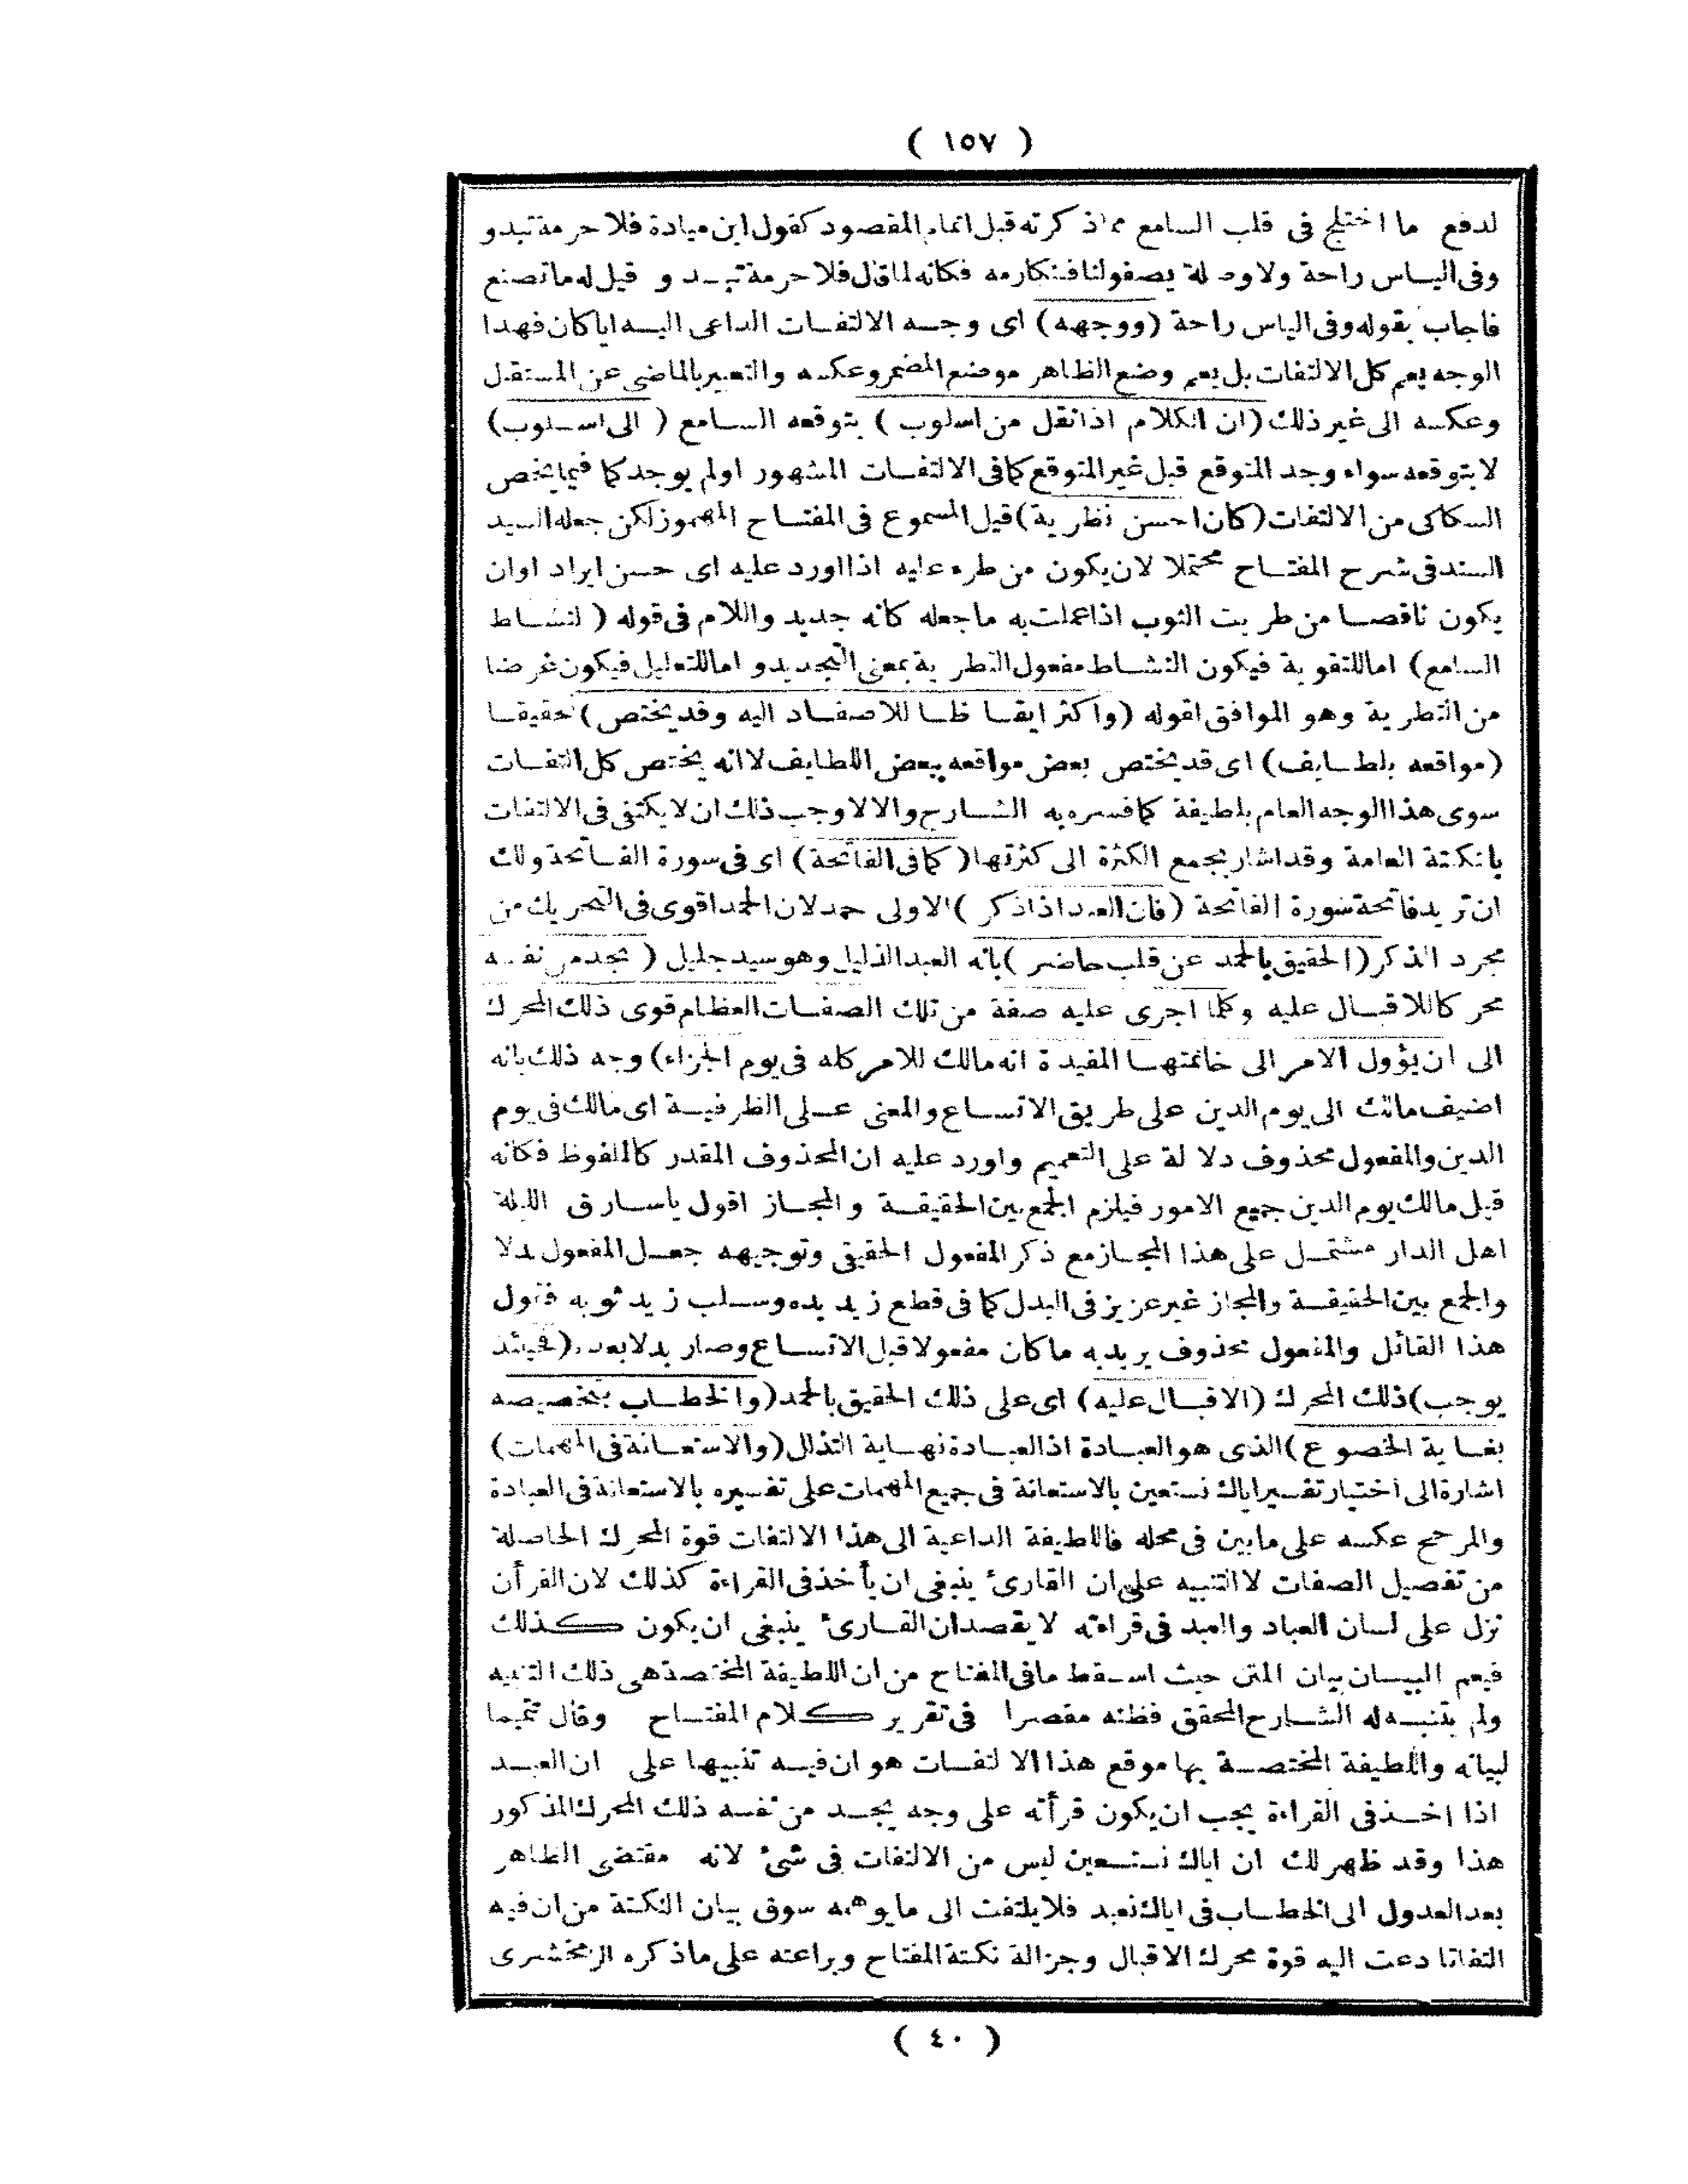 ( ١٥٧ )
لدفع ما اختلج فى قلب السامع مماذكرته قبل اتمام المقصود كقول ابن ميادة فلا حرمة تبدو
وفى اليأس راحة ولا وصلة يصفو لنا فنكارمه فكانه لما قال فلا حرمة تبــدو قيل له ما تصنع
فاجاب بقوله وفى الياس راحة (ووجهه) اى وجــه الالتفــات الداعى اليــه اياكان فهدا
الوجه يعم كل الالتفات بل يعم وضع الظاهر موضع المضمر وعكسه والتعبير بالماضى عن المستقبل
وعكسه الى غير ذلك (ان الكلام اذا نقل من اسلوب ) يتوقعه الســامع ( الى اســلوب)
لا يتوقعه سواء وجد المتوقع قبل غير المتوقع كما فى الالتفــات المشهور اولم يوجد كما فيما يخص
السكاكى من الالتفات (كان احسن نظرية) قيل المسموع فى المفتــاح المهموز لكن جعله السيد
السند فى شرح المفتــاح محتملا لان يكون من طرء عليه اذا اورد عليه اى حسن ايراد اوان
يكون ناقصــا من طريت الثوب اذا عملت به ما جعله كانه جديد واللام فى قوله ( لنشــاط
السامع) اما للتقوية فيكون النشــاط مفعول التطرية بمعنى التجديد واما للتعليل فيكون غرضا
من التطرية وهو الموافق لقوله (واكثر ايقــا ظــا للاصغــاد اليه وقد يختص) حقيقــا
(مواقعه بلطــايف) اى قد يختص بعض مواقعه ببعض اللطايف لا انه يختص كل التفــات
سوى هذا الوجه العام بلطيفة كما فسره به الشــارح والا لاوجب ذلك ان لا يكتفى فى الالتفات
بالنكتة العامة وقد اشار بجمع الكثرة الى كثرتها (كما فى الفاتحة) اى فى سورة الفــاتحة ولك
ان تريد فاتحة سورة الفاتحة (فان العبد اذا ذكر )الاولى حمد لان الحمد اقوى فى التحريك من
مجرد الذكر (الحقيق بالحمد عن قلب حاضر )بانه العبد الذليل وهو سيد جليل ( يجد من نفسه
محركا للاقبــال عليه وكلما اجرى عليه صفة من تلك الصفــات العظــام قوى ذلك المحرك
الى ان يؤول الامر الى خاتمتهــا المفيدة انه مالك للامر كله فى يوم الجزاء) وجه ذلك بانه
اضيف مالك الى يوم الدين على طريق الاتســاع والمعنى عــلى الظرفيــة اى مالك فى يوم
الدين والمفعول محذوف دلالة على التعميم واورد عليه ان المحذوف المقدر كالملفوظ فكانه
قيل مالك يوم الدين جميع الامور فيلزم الجمع بين الحقيقــة والمجــاز اقول ياســارق الليلة
اهل الدار مشتمــل على هذا المجــاز مع ذكر المفعول الحقيقى وتوجيهه جعــل المفعول بدلا
والجمع بين الحقيقــة والمجاز غير عزيز فى البدل كما فى قطع زيد يده وســلب زيد ثوبه فقول
هذا القائل والمفعول محذوف يريد به ما كان مفعولا قبل الاتســاع وصار بدلا بعده (فحينئذ
يوجب) ذلك المحرك (الاقبــال عليه) اى على ذلك الحقيق بالحمد (والخطــاب بتخصيصه
بغــاية الخضوع )الذى هو العبــادة اذ العبــادة نهــاية التذلل (والاستعــانة فى المهمات)
اشارة الى اختيار تفسير اياك نستعين بالاستعانة فى جميع المهمات على تفسيره بالاستعانة فى العبادة
والمرجح عكسه على ما بين فى محله فاللطيفة الداعية الى هذا الالتفات قوة المحرك الحاصلة
من تفصيل الصفات لا التنبيه على ان القارئ ينبغى ان يأخذ فى القراءة كذلك لان القرأن
نزل على لسان العباد والعبد فى قراءته لا يقصد ان القــارئ ينبغى ان يكون كــذلك
فيعم البيــان بيان المتن حيث اســقط ما فى المفتاح من ان اللطيفة المختصة هى ذلك التنبيه
ولم يتنبــه له الشــارح المحقق فظنه مقصرا فى تقرير كــلام المفتــاح وقال تتميما
لبيانه واللطيفة المختصــة بها موقع هذا الا لتفــات هو ان فيــه تنبيها على ان العبــد
اذا اخــذ فى القراءة يجب ان يكون قرأته على وجه يجــد من نفسه ذلك المحرك المذكور
هذا وقد ظهر لك ان اياك نســتــعين ليس من الالتفات فى شئ لانه مقتضى الظاهر
بعد العدول الى الخطــاب فى اياك نعبد فلا يلتفت الى ما يوهمه سوق بيان النكتة من ان فيه
التفاتا دعت اليه قوة محرك الاقبال وجزالة نكتة المفتاح وبراعته على ما ذكره الزمخشرى
( ٤٠ )